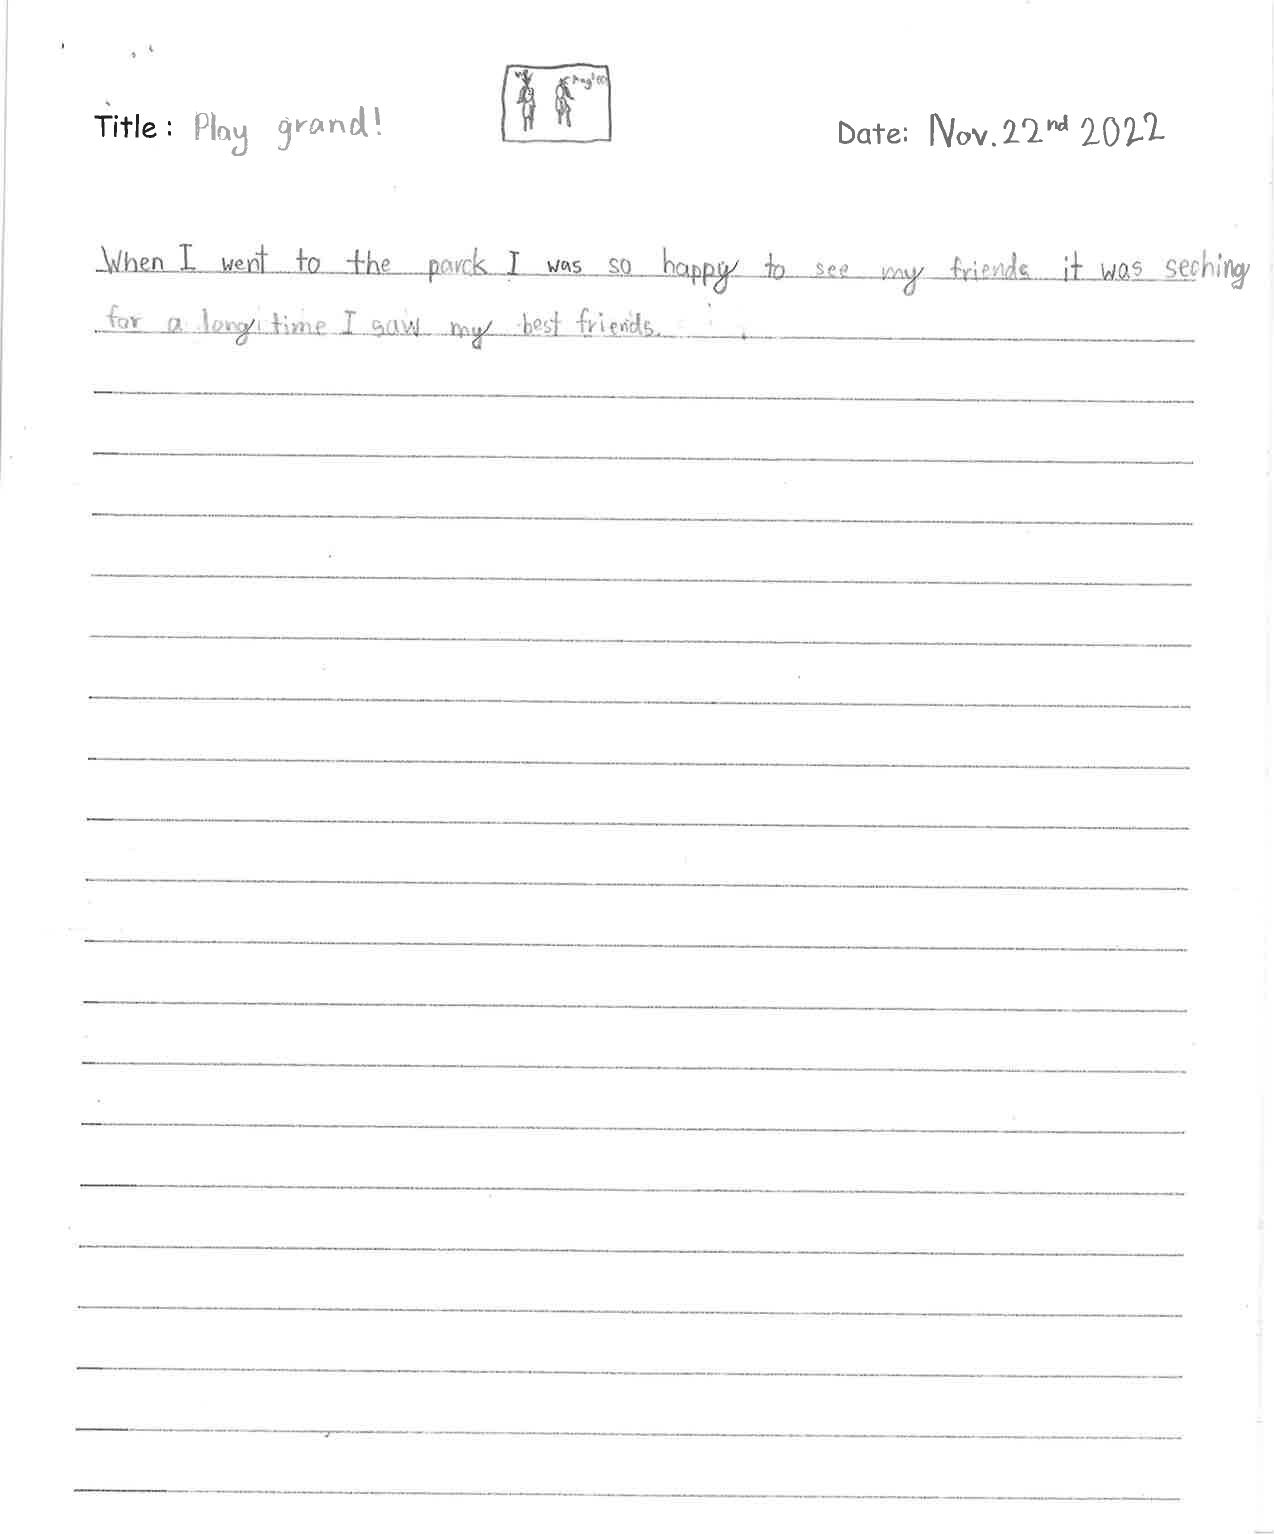 Title: Play grand!
Date: Nov. 22nd 2022
When I went to the parck I was so happy to see my friends it was seching
for a long time I saw my best friends.